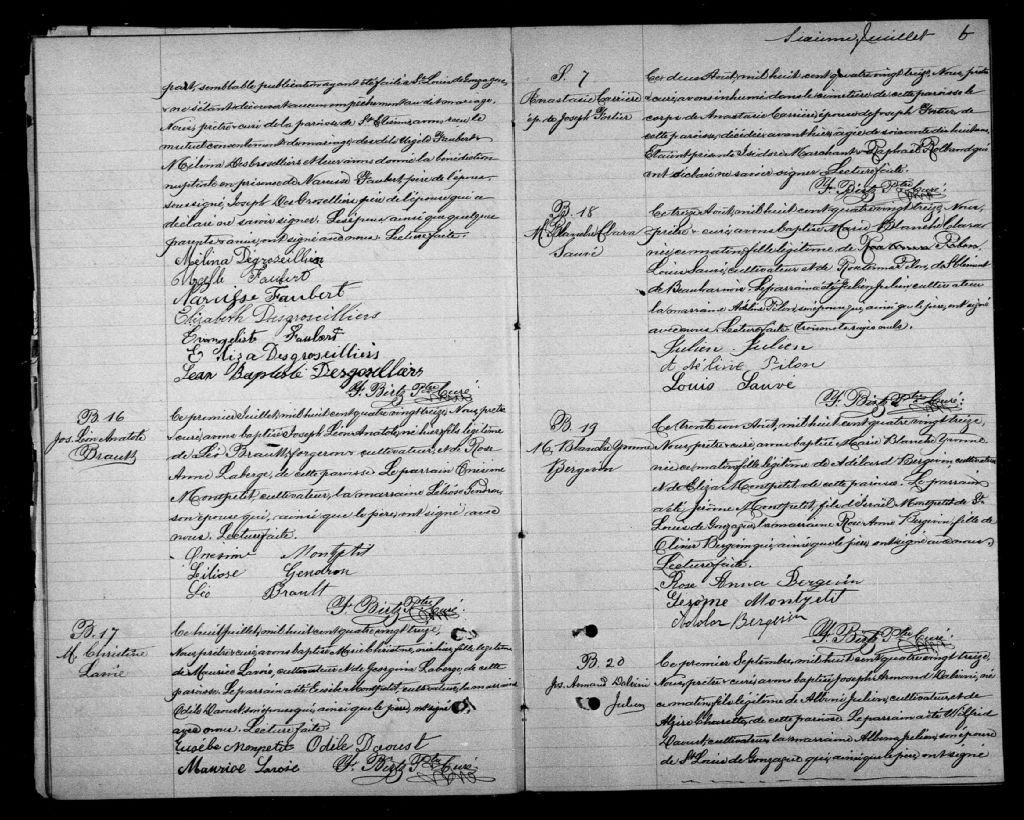 part, semblable publication ayant été faite à St. Louis de Gonzague,
& ne s'étant découvert aucun empêchement au dit mariage,
Nous, prêtre & curé de la paroisse de St. Etienne, avons reçu le
mutuel consentement de mariage des dits Faubert &
Mélina Desgroseilliers & leur avons donné la bénédiction
nuptiale en présence de Narcisse Faubert, père de l'époux,
soussigné, Joseph DesGroseilliers, père de l'épouse qui a
déclaré ne savoir signer. Les époux, ainsi que quelques
parents & amis, ont signé avec nous. Lecture faite.
Mélina Desgroseillier
Faubert
Narcisse Faubert
Elizabeth Desgroseilliers
Evangeliste Faubert
Eliza Desgroseilliers
Jean Baptiste Desgroseilliers
Ptre Curé.
B. 16
Jos. Léon Anatole
Brault
Ce premier Juillet, mil huit cent quatre vingt treize, Nous, prêtre
& curé, avons baptisé Joseph Léon Anatole, né hier, fils légitime
de Léo Brault, forgeron & cultivateur, et de Rose
Anne Laberge, de cette paroisse. Le parrain Onésime
Montpetit, cultivateur, la marraine Léliose Gendron,
son épouse qui, ainsi que le père, ont signé avec
nous. Lecture faite.
Onesime Montpetit
Léliose Gendron
Léo Brault
Ptre Curé.
B. 17
M. Christine
Ce huit Juillet, mil huit cent quatre vingt treize,
Nous, prêtre & curé, avons baptisé Marie Christine, née hier, fille légitime
de Maurice, cultivateur & de Georgina Laberge, de cette
paroisse. Le parrain a été Eusèbe Montpetit, cultivateur, la marraine
Odile Daoust, son épouse qui, ainsi que le père, ont signé
avec nous. Lecture faite.
Eusèbe Monpetit Odile Daoust
Maurice
Ptre Curé.
Sixième, feuillet 6
S. 7
Anastasie Carrière
ép. de Joseph Fortier
Ce deux Août, mil huit cent quatre vingt treize, Nous, prêtre
& curé, avons inhumé dans le cimetière de cette paroisse le
corps de Anastasie Carrière, épouse de Joseph Fortier, de
cette paroisse, décédée avant hier, agée de soixante dix huit ans.
Etaient présents Isidore Marchand & Raphaël Rolland qui
ont déclaré ne savoir signer. Lecture faite.
Ptre Curé.
B. 18
M. Blanche Clara
Sauvé
Ce treize Août, mil huit cent quatre vingt treize, Nous,
prêtre & curé, avons baptisé Marie Blanche Clara
née ce matin, fille légitime de
Louis Sauvé, cultivateur & de Pilon, de St Clément
de Beauharnois. Le parrain a été Julien Julien cultivateur
la marraine Adéline Pilon, son épouse qui, ainsi que le père, ont signé
avec nous. Lecture faite. Trois mots rayés nuls.
Julien Julien
Adéline Pilon
Louis Sauvé
Ptre Curé.
B. 19
M. Blanche Yvonne
Bergevin
Ce trente un Août, mil huit cent quatre vingt treize,
Nous, prêtre & curé, avons baptisé Marie Blanche Yvonne
née ce matin, fille légitime de Adélard Bergevin, cultivateur
& de Eliza Montpetit de cette paroisse. Le parrain
a été Jérôme Montpetit, fils d'Israël Montpetit de St.
Louis de Gonzague, la marraine Rose Anna Bergevin, fille de
Olivier Bergevin qui, ainsi que le père, ont signé avec nous.
Lecture faite.
Rose Anna Bergevin
Montpetit
Bergevin
Ptre Curé.
B. 20
Jos. Armand
Julien
Ce premier Septembre, mil huit cent quatre vingt treize,
Nous, prêtre & curé, avons baptisé Joseph Armand, né
ce matin, fils légitime de Julien, cultivateur et de
Alzire Charette, de cette paroisse. Le parrain a été Wilfrid
Daoust, cultivateur, la marraine Julien, son épouse
de St. Louis de Gonzague qui, ainsi que le père, ont signé